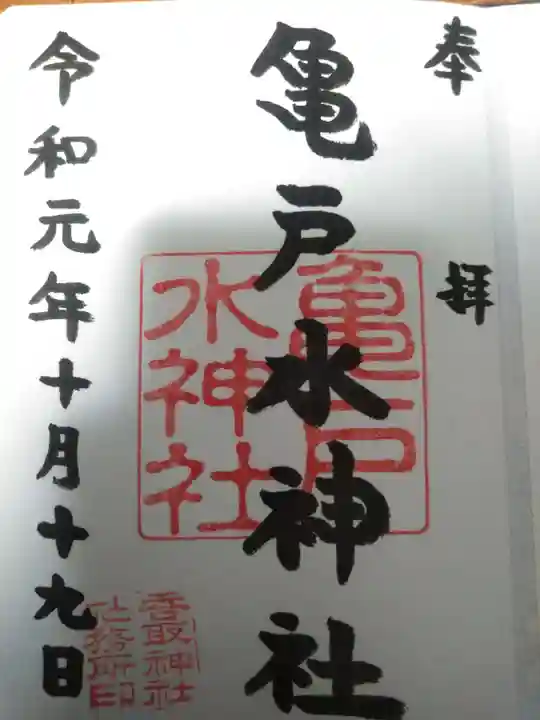 奉拝
亀戸水神社
亀戸
水神社
令和元年十月十九日
香取神社
社務所印